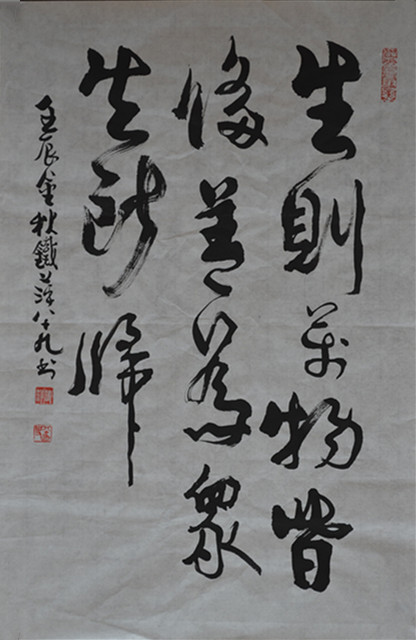 生則萬物皆
修善為眾
生所歸
壬辰金秋鐵八十九書